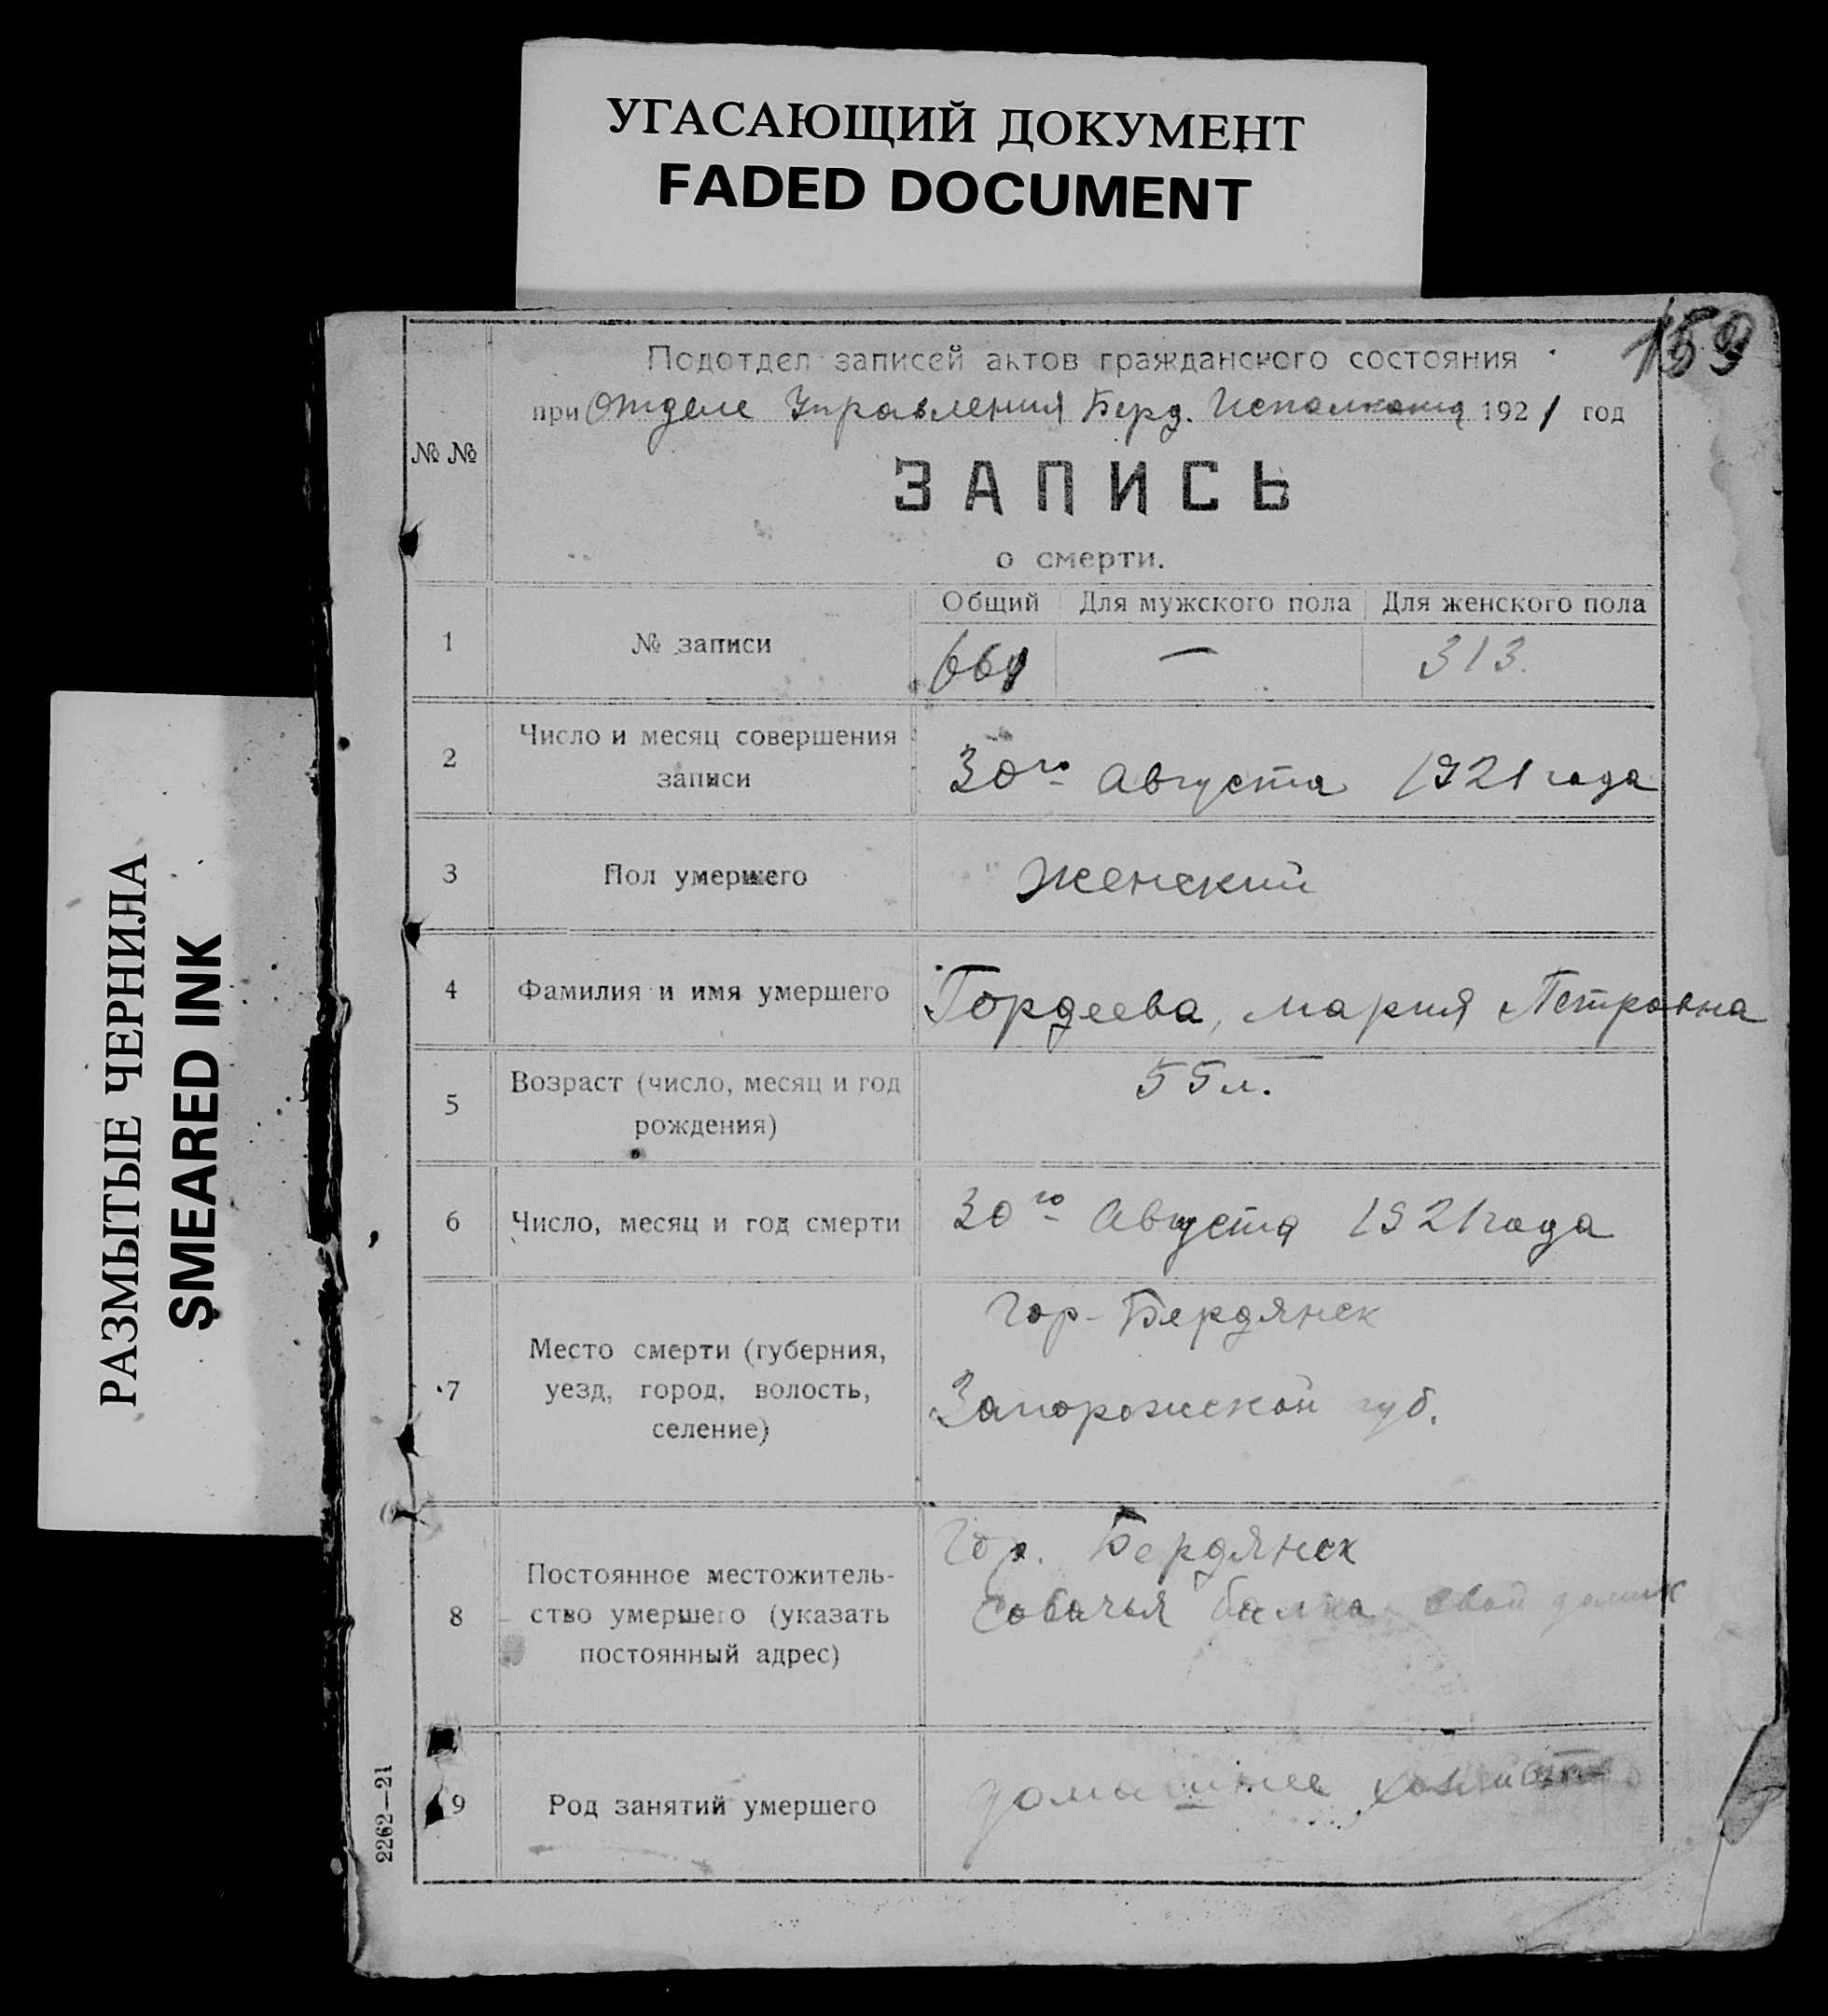 УГАСАЮЩИЙ ДОКУМЕНТ
FADED DOCUMENT
РАЗМЫТЫЕ ЧЕРНИЛА
SMEARED INK
159
Подотдел записей актов гражданского состояния
при Отделе Управления Берд. Исполкома 1921 год
№ №
ЗАПИСЬ
о смерти.
Общий Для мужского пола Для женского пола
1 № записи 661 — 313.
2 Число и месяц совершения
записи
30го Августа 1921 года
3 Пол умершего Женский
4 Фамилия и имя умершего Гордеева, Мария Петровна
5 Возраст (число, месяц и год
рождения)
55 л.
6 Число, месяц и год смерти 30го Августа 1921 года
7 Место смерти (губерния,
уезд, город, волость,
селение)
Гор-Бердянск
Запорожской губ.
8 Постоянное местожитель-
ство умершего (указать
постоянный адрес)
Гор. Бердянск
Собачья балка свой домик
9 Род занятий умершего домашнее
2262—21